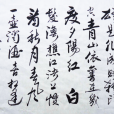 青山依舊在幾
度夕陽紅 白
髮漁樵江渚上慣
看秋月春風
一壺濁酒喜相逢